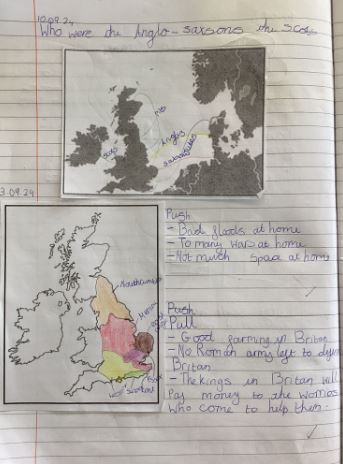 10.09.24
Who were the Anglo-saxsons the Scots
Scots
Angles
3.09.24
Push
- Bad floods at home
- To many wars at home
- Not much space at home
Push
Pull
- Good farming in Britan
- No Roman army left to
Britan
- The kings in Britan will
Pay money to the
who come to help them.